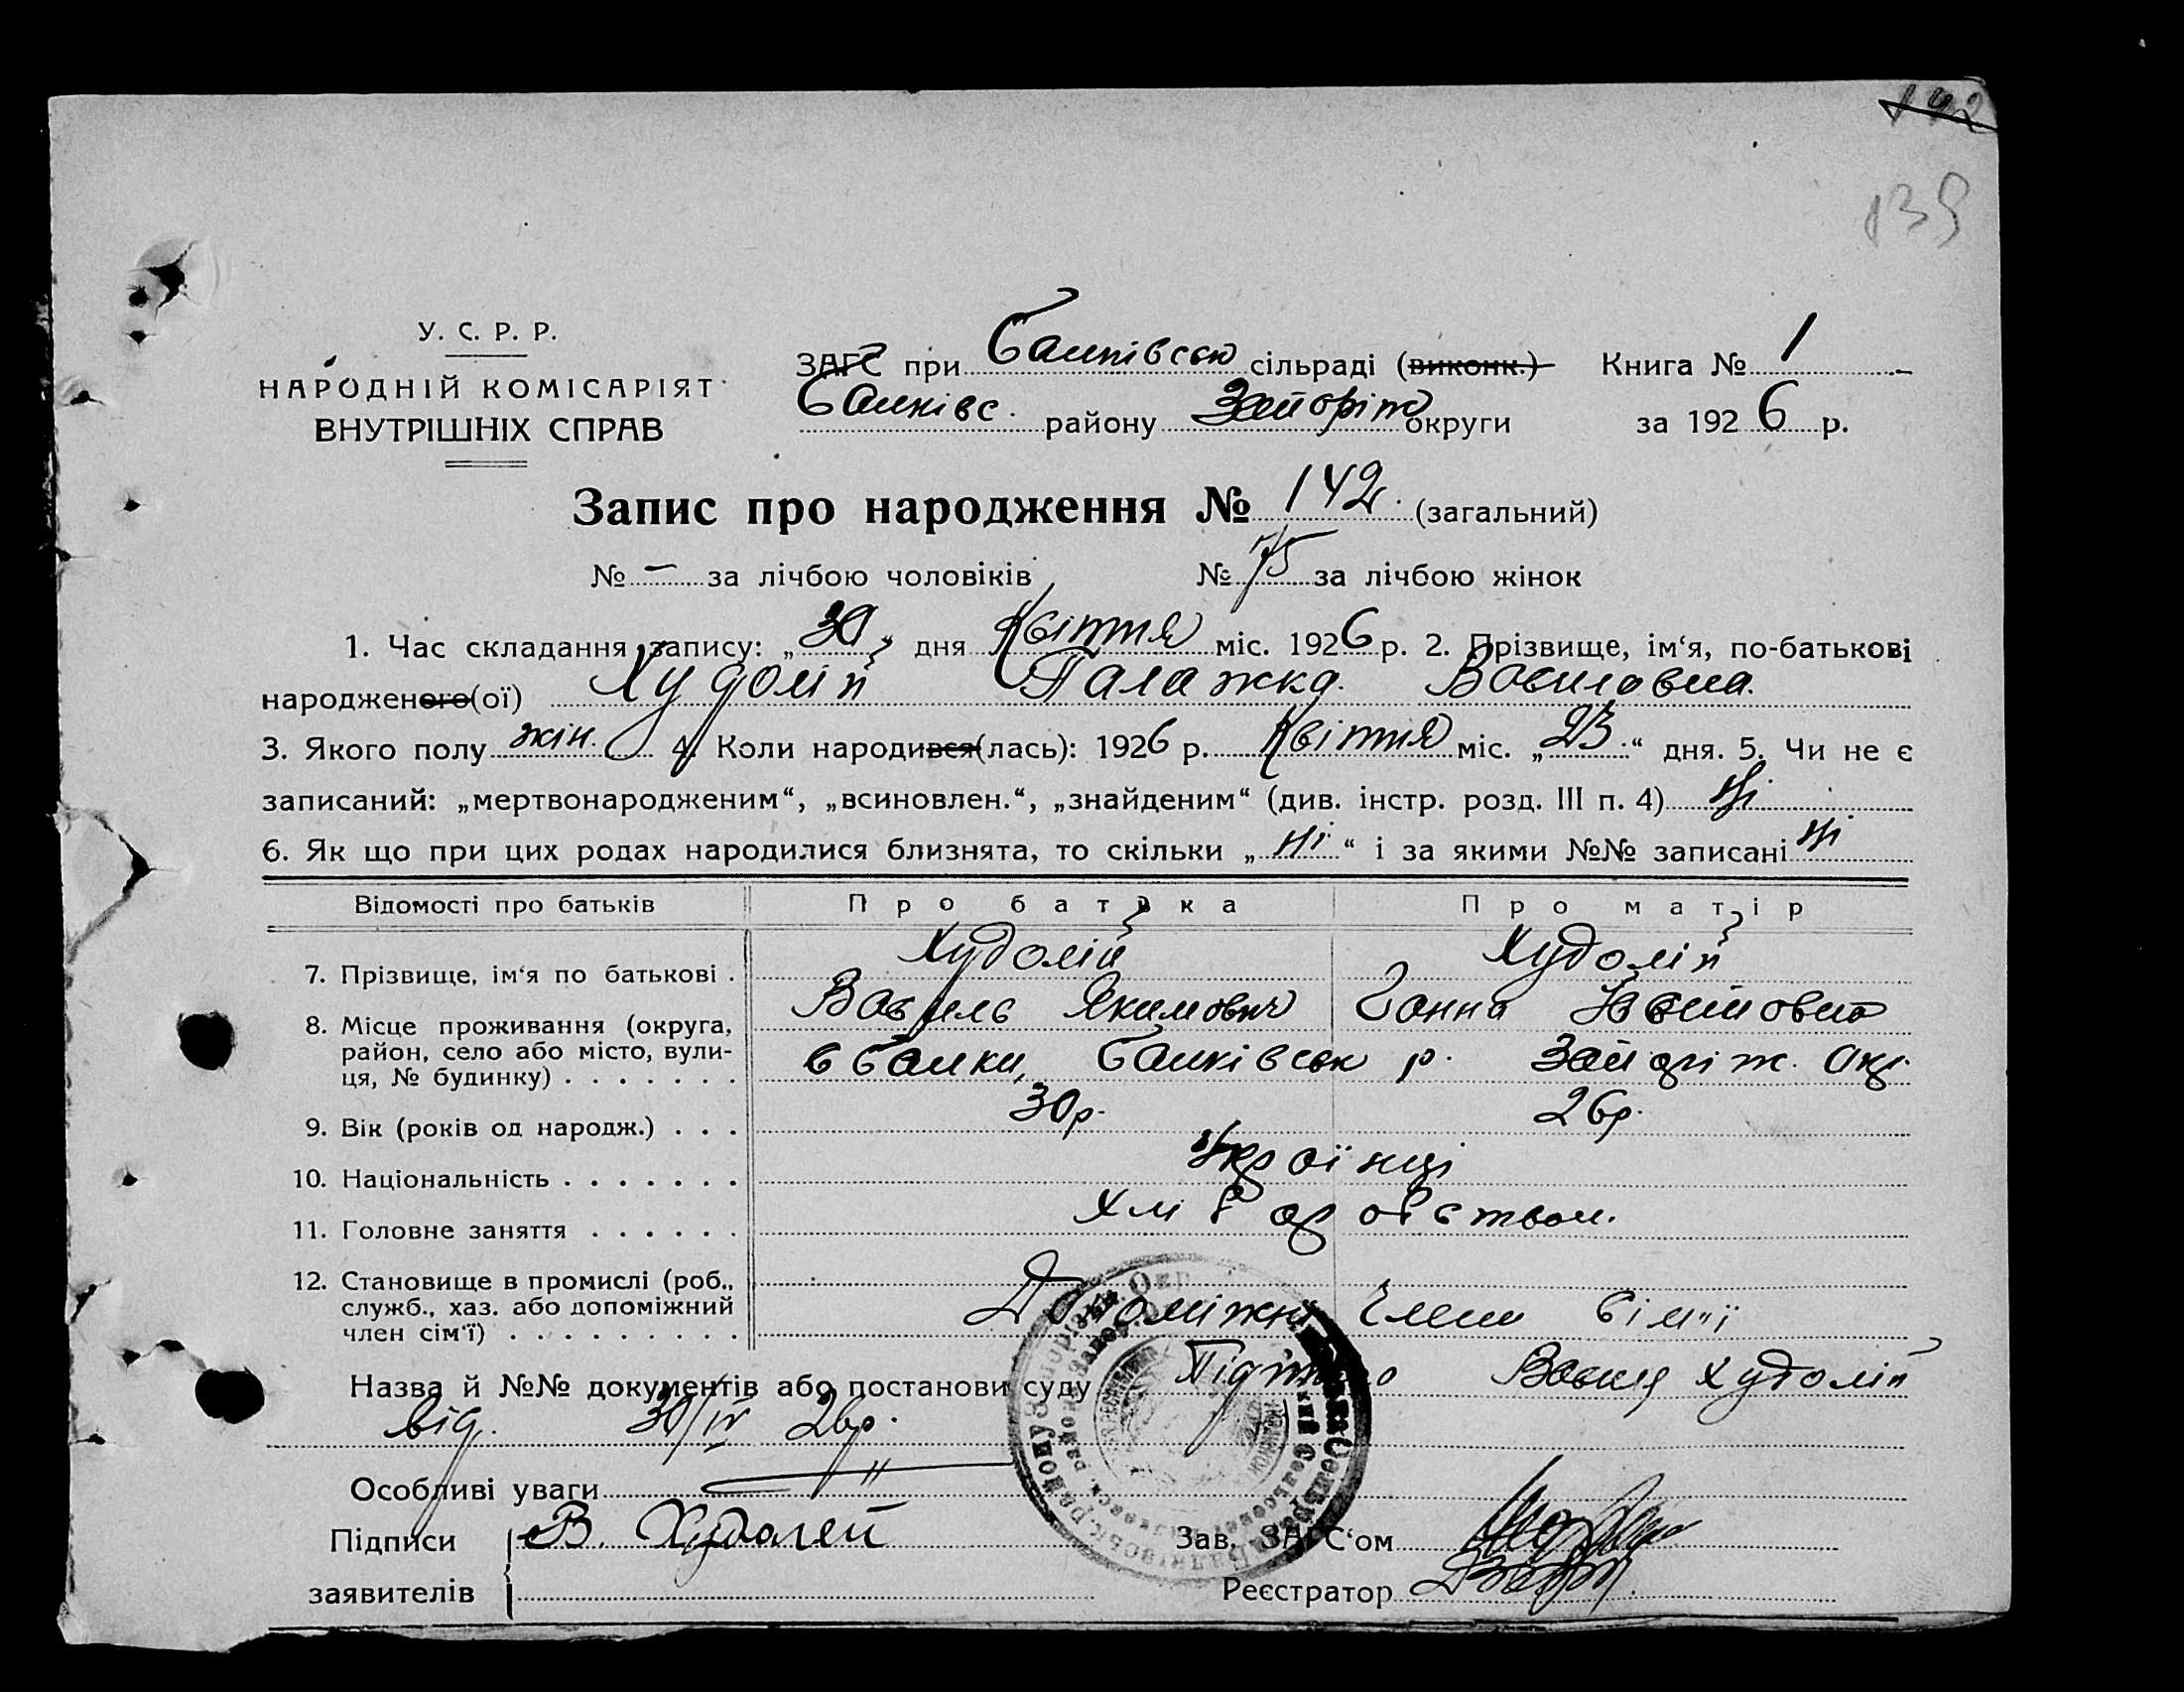 142
139
У. С. Р. Р.
НАРОДНІЙ КОМІСАРІЯТ
ВНУТРІШНІХ СПРАВ
ЗАГС при Балківськ сільраді (виконк.) Книга № 1
Балківс. району Запоріж округи за 1926 р.
Запис про народження № 142. (загальний)
№ – за лічбою чоловіків № 75 за лічбою жінок
1. Час складання запису: „30“ дня Квітня міс. 1926 р. 2. Прізвище, ім‘я, по-батькові
народженого(ої) Худолій Палажка Василовна.
3. Якого полу жін. 4. Коли народився(лась): 1926 р. Квітня міс. „23“ дня. 5. Чи не є
записаний: „мертвонародженим“, „всиновлен.“, „знайденим“ (див. інстр. розд. III п. 4) ні
6. Як що при цих родах народилися близнята, то скільки „ні“ і за якими №№ записані ні
Відомості про батьків Про батька Про матір
7. Прізвище, ім‘я по батькові . Худолій Худолій
Василь Якимович Ганна
8. Місце проживання (округа, район, село або місто, вули-ця, № будинку) . . . . . . . с Балки, Балківськ р. Запоріж. Окр.
9. Вік (років од народж.) . . . 30р. 26р.
10. Національність . . . . . . . Українці
11. Головне заняття . . . . . . Хліборобством.
12. Становище в промислі (роб., служб., хаз. або допоміжний член сім‘ї) . . . . . . . . . Допоміжні члени сім'ї
Назва й №№ документів або постанови суду Василя Худолій
від. 30/IV 26р.
Особливі уваги
Підписи В. Худолей Зав. ЗАГС‘ом
заявителів Реєстратор